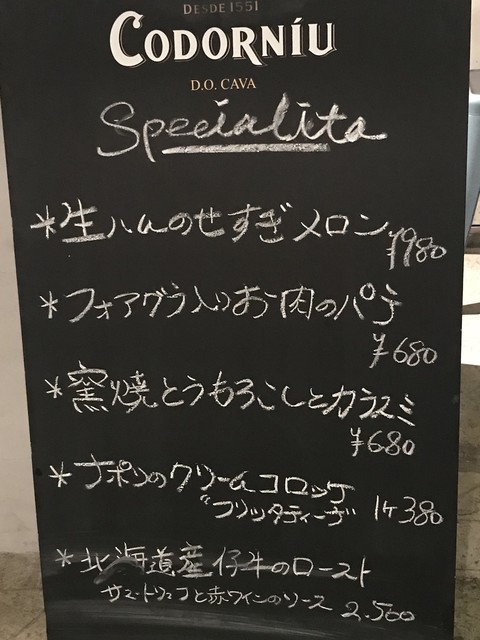 DESDE 1551
CODORNÍU
D.O. CAVA
Specialita
*生ハムのせすぎメロン ¥980
*フォアグラ入りお肉のパテ
¥680
*窯焼とうもろこしとカラスミ
¥680
*ナポリのクリームコロッケ
"フリッタティーナ" 1ケ380
*北海道産仔牛のロースト
サマートリュフと赤ワインのソース 2.500